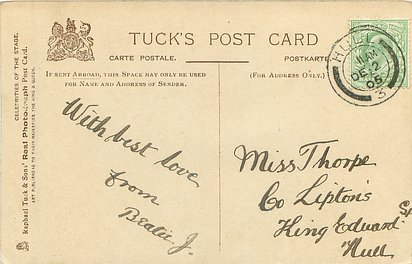 TUCK'S POST CARD
CARTE POSTALE.
POSTKARTE
IF SENT ABROAD, THIS SPACE MAY ONLY BE USED
FOR NAME AND ADDRESS OF SENDER.
(FOR ADDRESS ONLY.)
HULL
11 AM
DE
05
3
CELEBRITIES OF THE STAGE.
Raphael Tuck & Sons' Real Photograph Post Card.
ART PUBLISHERS TO THEIR MAJESTIES THE KING & QUEEN.
With best love
from
Beatie. J.
Miss Thorpe
Co Lipton's
King Edward St
Hull